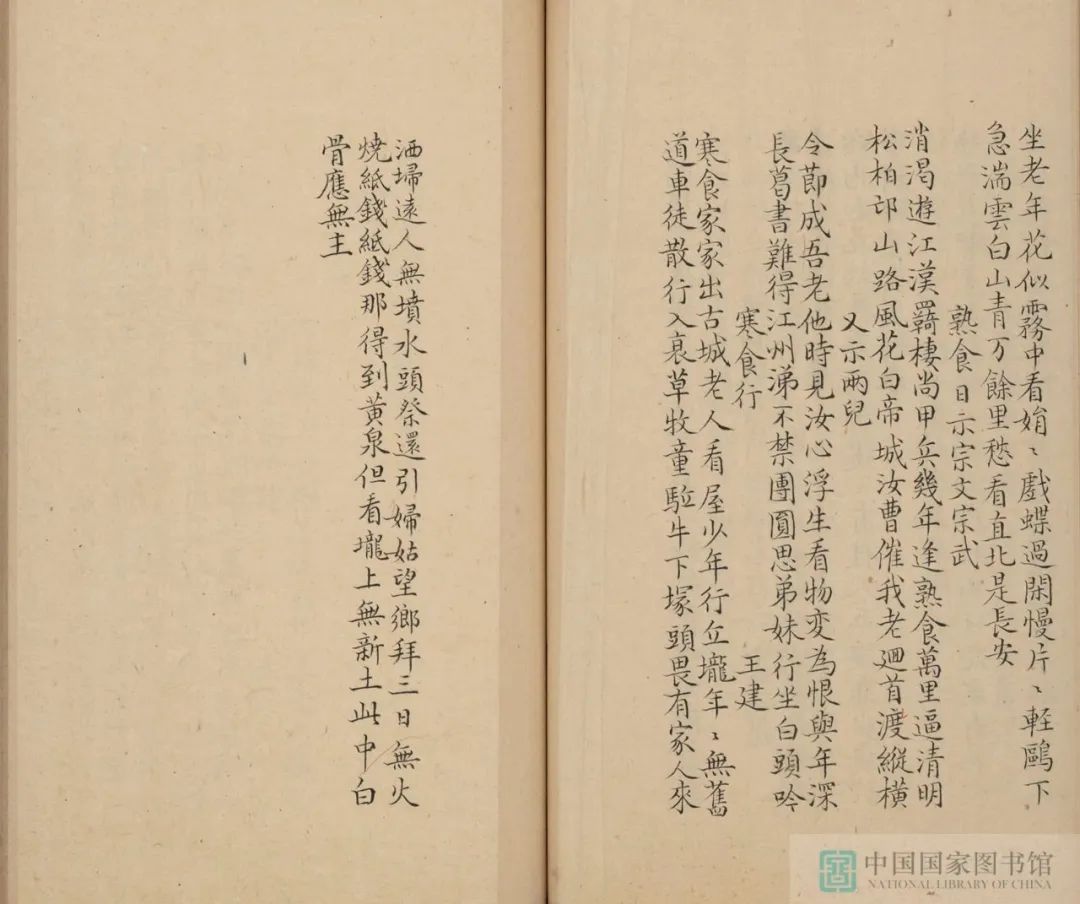 坐老年花似霧中看娟〻戲蝶過閑幔片〻輕鷗下
急湍雲白山青万餘里愁看直北是長安
熟食日示宗文宗武
消渴遊江漢羇棲尚甲兵幾年逢熟食萬里逼清明
松柏邙山路風花白帝城汝曹催我老迴首渡縱橫
又示兩兒
令節成吾老他時見汝心浮生看物变為恨與年深
長葛書難得江州涕不禁團圓思弟妹行坐白頭吟
寒食行 王建
寒食家家出古城老人看屋少年行丘壠年〻無舊
道車徒散行入衰草牧童駈牛下塚頭畏有家人來
洒埽遠人無墳水頭祭還引婦姑望鄉拜三日無火
燒紙錢紙錢那得到黃泉但看壠上無新土此中白
骨應無主
中国国家图书馆
NATIONAL LIBRARY OF CHINA